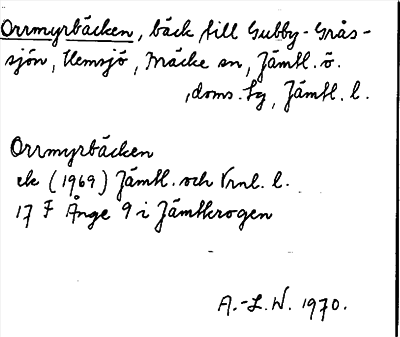 Orrmyrbäcken, bäck till Gubby-Grås-
sjön, Hemsjö, Bräcke sn, Jämtl. ö.
, doms. tg, Jämtl. l.
Orrmyrbäcken
ek (1969) Jämtl. och Vrnl. l.
17 F Ånge 9 i Jämtkrogen
A.-L.W. 1970.